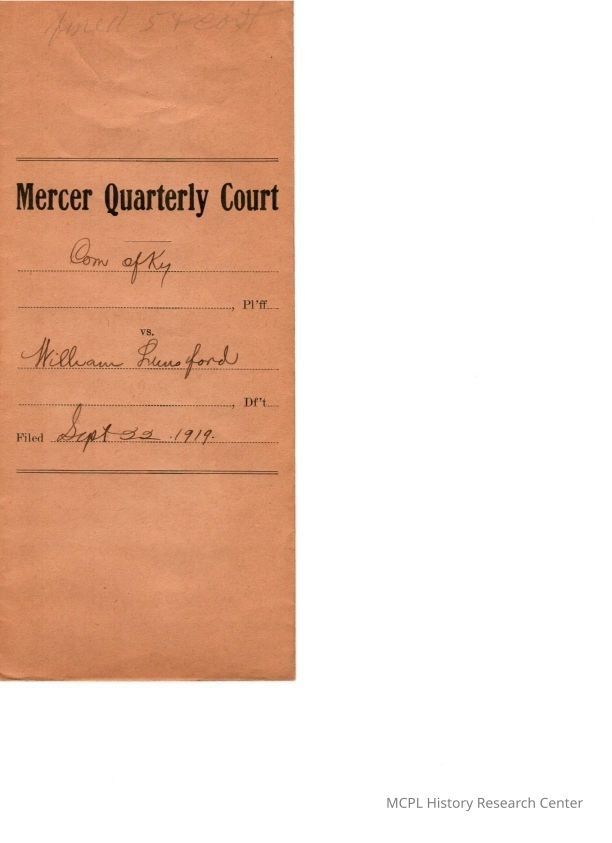 fined 5 & cost
Mercer Quarterly Court
Com of Ky
, Pl'ff.
vs.
William Lunsford
, Df't.
Filed Sept 22 1919.
MCPL History Research Center